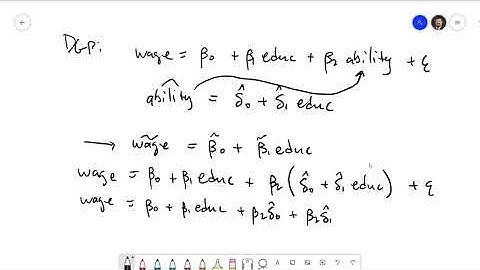 DGP: wage = β₀ + β₁ educ + β₂ ability + ε
ability^ = δ̂₀ + δ̂₁ educ
→ wage~ = β̃₀ + β̃₁ educ
wage = β₀ + β₁ educ + β₂ (δ̂₀ + δ̂₁ educ) + ε
wage = β₀ + β₁ educ + β₂ δ̂₀ + β₂ δ̂₁